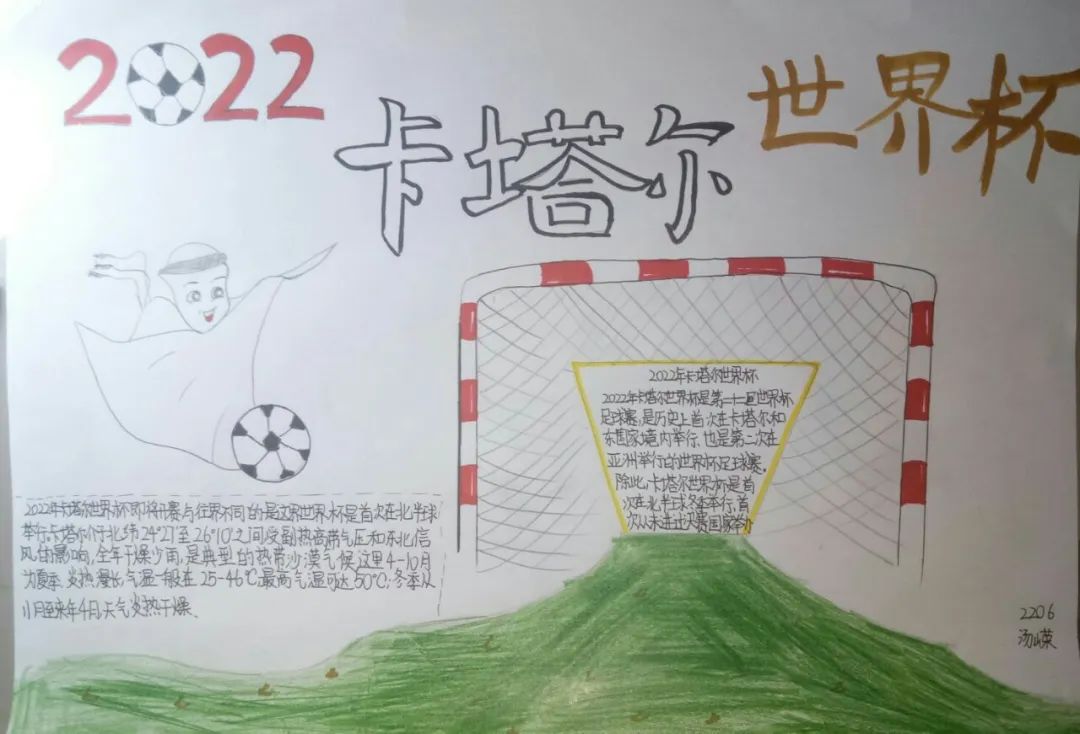 2022
卡塔尔
世界杯
2022年卡塔尔世界杯
2022年卡塔尔世界杯是第二十二届世界杯
足球赛,是历史上首次在卡塔尔和
东国家境内举行,也是第二次在
亚洲举行的世界杯足球赛。
除此,卡塔尔世界杯是首
次在北半球冬季举行,首
次从未进过大赛国家举办
2022年卡塔尔世界杯即将开赛与往界不同的是这次世界杯是首次在北半球
举行.卡塔尔介于北纬24°27至26°10之间受副热高带气压和东北信
风的影响,全年干燥少雨,是典型的热带沙漠气候,这里4-10月
为夏季,炎热漫长,气温一般在25-46℃,最高气温可达50℃;冬季从
11月至来年4月,天气炎热干燥.
2206